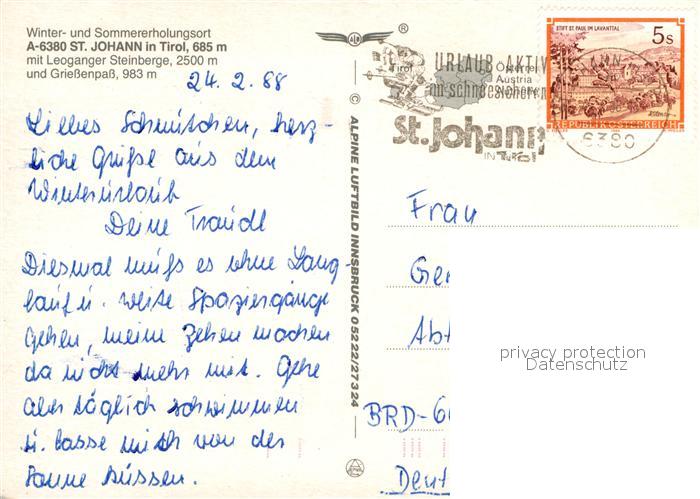 Winter- und Sommererholungsort
A-6380 ST. JOHANN in Tirol, 685 m
mit Leoganger Steinberge, 2500 m
und Grießenpaß, 983 m
24. 2. 88
Liebes Schmützchen, herz-
liche Grüße aus dem
Winterurlaub
Deine Traudl
Diesmal muß es ohne Lang-
lauf u. weite Spaziergänge
gehen, meine Zehen machen
da nicht mehr mit. Gehe
aber täglich schwimmen
u. lasse mich von der
Sonne küssen.
© ALPINE LUFTBILD INNSBRUCK 05222/27324
®
Tirol
URLAUB AKTIV
Österreich
Austria
Autriche
St. Johann
IN TIROL
STIFT ST. PAUL IM LAVANTTAL
5s
REPUBLIK ÖSTERREICH
6380
Frau
Ger
Abt
BRD-6
Deut
privacy protection
Datenschutz